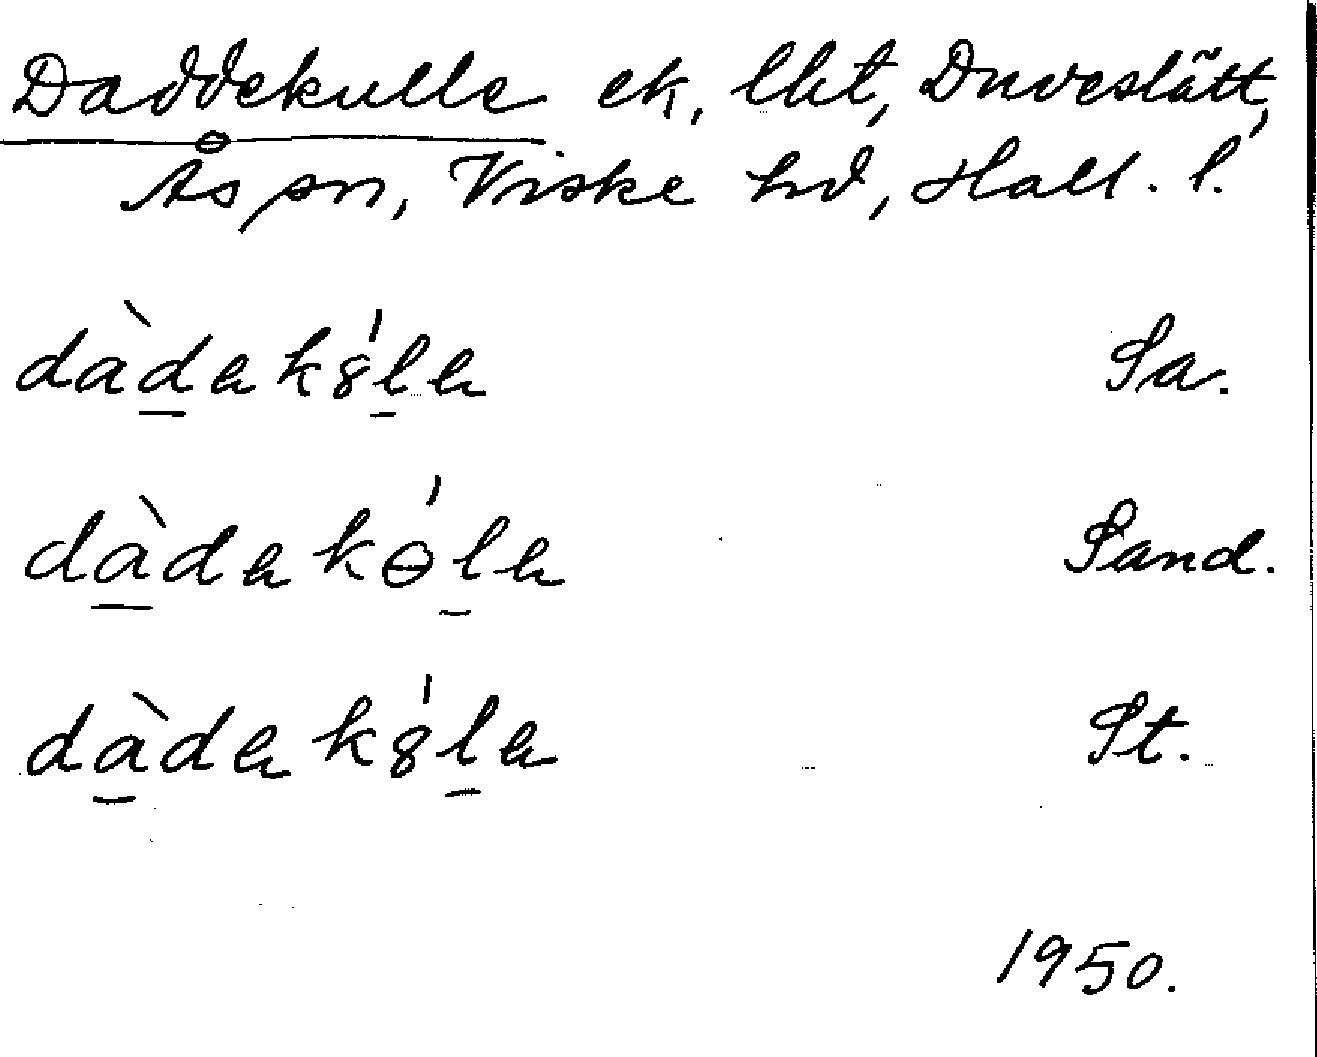 Daddekulle ek. lht, Duveslätt,
Ås sn, Viske hd, Hall. l.
dàdekȣ́le Sa.
dàdekɵ́le Sand.
dàdekȣ́le St.
1950.